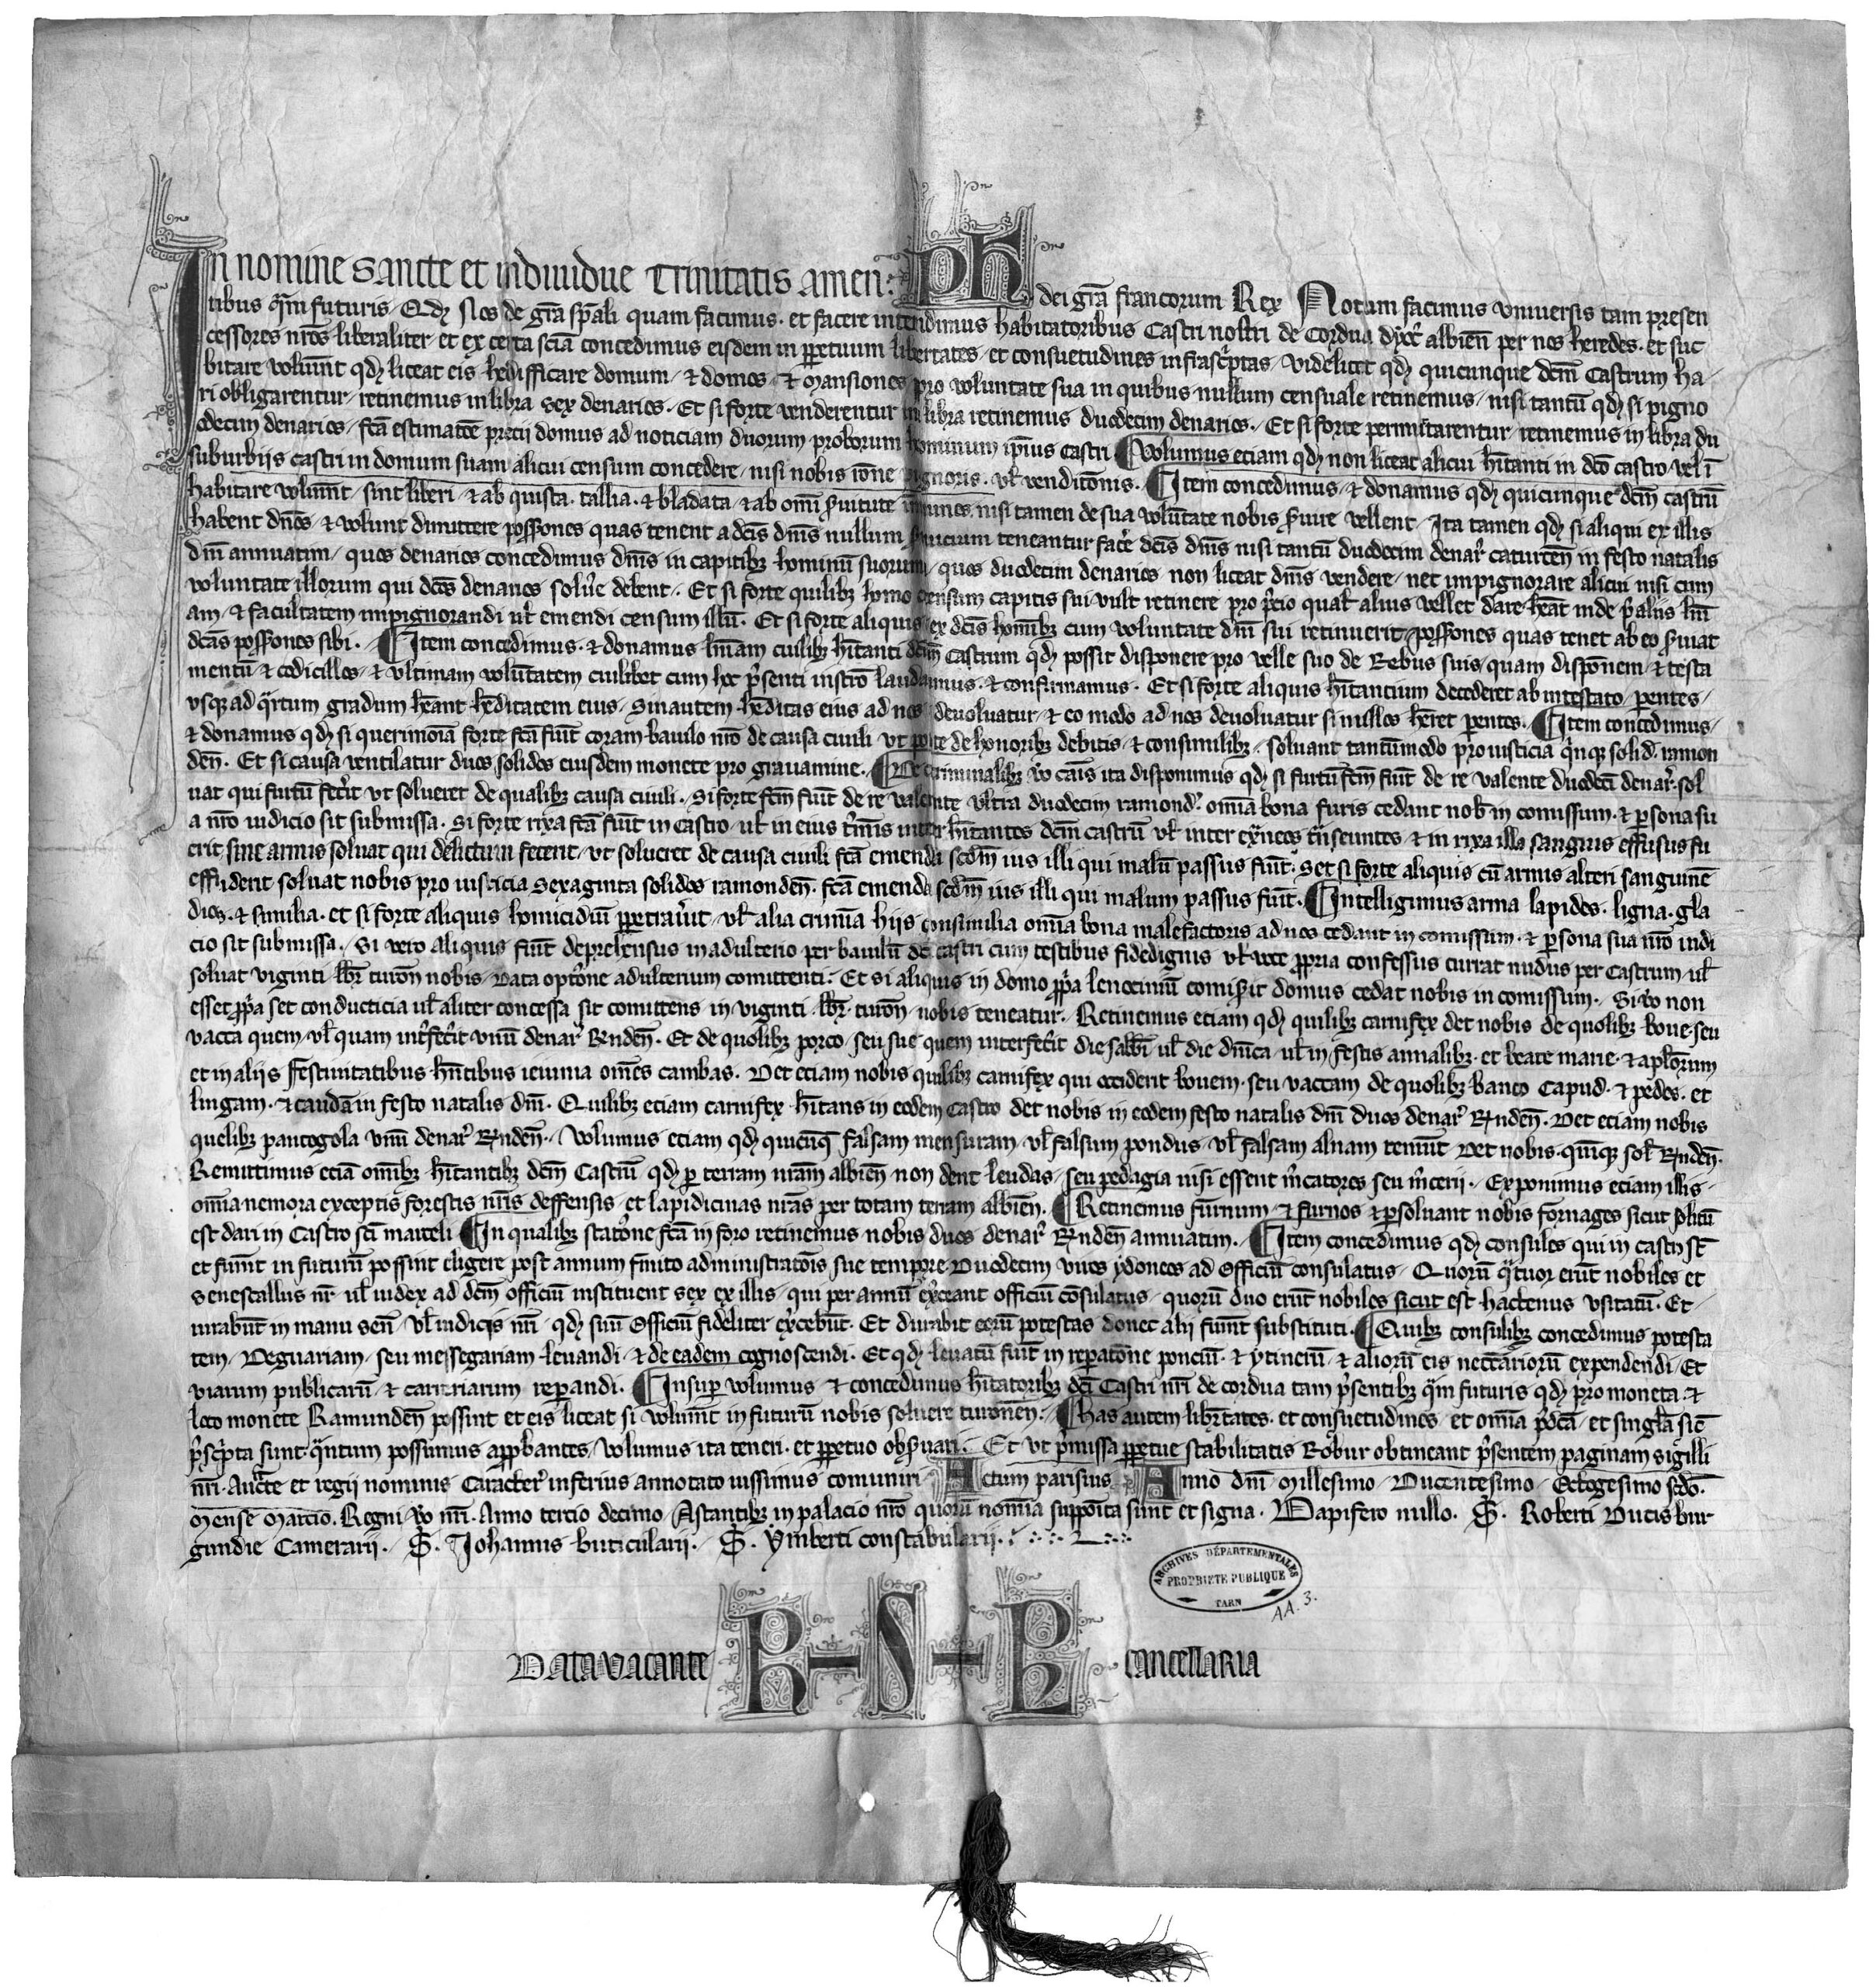 In nomine sancte et individue Trinitatis amen. Ph dei grã francorum Rex Notum facimus universis tam presen
tibus q̃m futuris. Qdꝫ Nos de grã sp̃ali quam facimus. et facere intendimus habitatoribus Castri nostri de Cordua dyoc̃ albieñ per nos heredes. et suc
cessores nr̃os liberaliter et ex certa sciã concedimus eisdem in ꝑpetuum libertates et consuetudines infrasc̃ptas. videlicet qdꝫ quicunque dc̃m Castrum ha
bitare voluĩnt qdꝫ liceat eis hedifficare domum et domos et mansiones pro voluntate sua in quibus nullum censuale retinemus nisi tantũ qdꝫ si pigno
ri obligarentur retinemus in libra sex denarios. Et si forte venderentur in libra retinemus duodecim denarios. Et si forte permutarentur retinemus in libra du
odecim denarios fc̃a estimatõe precii domus ad noticiam duorum proborum hominum ip̃ius castri ¶ Volumus eciam qdꝫ non liceat alicui hĩtanti in dc̃o castro vel ĩ
suburbijs castri in domum suam alicui censum concedere nisi nobis rõne pignoris. vl̃ venditõnis. ¶ Item concedimus et donamus qdꝫ quicunque dc̃m castrũ
habitare voluĩnt sint liberi et ab quista. tallia. et bladata et ab om̃i s̃vitute inmunes nisi tamen de sua volũtate nobis s̃vire vellent. Ita tamen qdꝫ si aliqui ex illis
habent dños et volunt dimittere possõnes quas tenent a dc̃is dñis nullum s̃vicium teneantur fac̃e dc̃is dñis nisi tantũ duodecim denar̃ caturceñ in festo natalis
dñi annuatim quos denarios concedimus dñis in capitibꝫ hominũ suorum quos duodecim denarios non liceat dñis vendere nec impignorare alicui nisi cum
voluntate illorum qui dc̃os denarios solṽe debent. Et si forte quilibꝫ homo censum capitis sui vult retinere pro p̃cio qual̃ alius vellet dare. heãt inde p̃ alijs lñi
am. et facultatem impignorandi vl̃ emendi censum illũ. Et si forte aliquis ex dc̃is hom̃ibꝫ cum voluntate dñi sui retinuerit possõnes quas tenet ab eo s̃viat
dc̃as possõnes sibi. ¶ Item concedimus. et donamus lñiam cuilibꝫ hĩtanti dc̃m castrum qdꝫ possit disponere pro velle suo de Rebus suis quam disponem̃ et testa
mentũ et codicillos et ultimam volũtatem cuilibet cum hoc p̃senti instrõ laudamus. et confirmamus. Et si forte aliquis hĩtancium decederet ab intestato parentes
usqꝫ ad q̃rtum gradum heãnt hẽditatem eius. Sin autem hẽditas eius ad nos devoluatur et eo modo ad nos devoluatur si nullos hẽret parentes. ¶ Item concedimus
et donamus qdꝫ si querimoniã forte fc̃a fũit coram bauilo nr̃o de causa civili ut pote de honoribꝫ debitis et consimilibꝫ. soluant tantũmodo pro iusticia q̃nqꝫ solid. ramon
deñ. Et si causa ventilatur duos solidos eiusdem monete pro gravamine. ¶ De criminalibꝫ vo cãis ita disponimus qdꝫ si furtũ fc̃m fũit de re valente duodeci denar̃. sol
vat qui furtũ fec̃it ut solueret de qualibꝫ causa civili. Si forte fc̃m fũit de re valente ultra duodecim ramond̃. om̃ia bona furis cedant nob̃ in comissum. et ꝑsona su
a nr̃o iudicio sit submissa. Si forte rixa fc̃a fũit in castro vl̃ in eius t̃minis inter hĩtantes dc̃m castrũ vl̃ inter ext̃neos t̃nseuntes et in rixa illa sanguis effusus fu
erit sine armis soluat qui delictum fecerit ut solueret de causa civili fc̃a emenda scdm̃ ius illi qui malũ passus fũit. Set si forte aliquis cũ armis alteri sanguinẽ
effuderit soluat nobis pro iusticia sexaginta solidos ramondeñ. fc̃a emenda scdm̃ ius illi qui malum passus fũit. ¶ Intelligimus arma lapides. ligna. gla
dios. et similia. et si forte aliquis homicidiũ ꝑpetrav̾it vl̃ alia criminã hijs consimilia om̃ia bona malefactoris ad nos cedant in comissum. et ꝑsona sua nr̃o iudi
cio sit submissa. Si vero aliquis fũit deprehensus in adulterio per baiulũ dc̃i castri cum testibus fidedignis vl̃ voce ꝓpria confessus currat nudus per castrum vl̃
soluat viginti lbr̃ turoñ nobis data optõne adulterium comittenti. Et si aliquis in domo ꝓp̃a lenocimũ comis̃it domus cedat nobis in comissum. Si vo non
esset ꝓp̃a set conducticia vl̃ aliter concessa sit comittens in viginti lbr̃ turoñ nobis teneatur. Retinemus eciam qdꝫ quilibꝫ carnifex det nobis de quolibꝫ bove seu
vacca quem vl̃ quam int̃fec̃it unũ denar̃ Rmdeñ. Et de quolibꝫ porco seu sue quem interfec̃it die sabbi vl̃ die dñica vl̃ in festis annalibꝫ. et beate marie. et apl̃orum
et in alijs festivitatibus hñtibus ieiunia om̃es cambas. Det eciam nobis quilibꝫ carnifex qui occiderit bovem. seu vaccam de quolibꝫ banco capud. et pedes. et
lingam. et caudã in festo natalis dñi. Quilibꝫ eciam carnifex hĩtans in eodem castro det nobis in eodem festo natalis dñi duos denar̃ Rmdeñ. Det eciam nobis
quelibꝫ pancogola unũ denar̃ Rmdeñ. Volumus eciam qdꝫ quicũqꝫ falsam mensuram vl̃ falsum pondus vl̃ falsam alnam tenũit det nobis. quinqꝫ sol̃ Rmdeñ.
Remittimus eciã om̃ibꝫ hĩtantibꝫ dc̃m castrũ qdꝫ ꝑ terram nr̃am albieñ non dent leudas seu pedagia nisi essent m̃catores seu m̃cerii. Exponimus eciam illis
om̃ia nemora exceptis forestis nr̃is deffensis et lapidicinas nr̃as per totam terram albieñ. ¶ Retinemus furnum et furnos et ꝑsoluant nobis fornages sicut solitũ
est dari in Castro sc̃i marcelli ¶ In qualibꝫ statõne fc̃a in foro retinemus nobis duos denar̃ Rmdeñ annuatim. ¶ Item concedimus qdꝫ consules qui in castro st̃
et fũint in futurũ possint eligere post annum finito administratõis sue tempore duodecim viros ydoneos ad officiũ consulatus. Quorũ q̃tuor erũt nobiles et
senescallus nr̃ vl̃ iudex ad dc̃m officiũ instituent sex ex illis qui per annũ exc̃eant officiũ consulatus quorũ duo erũt nobiles sicut est hactenus usitatũ. Et
iurabũt in manu señ vl̃ iudicis nr̃i qdꝫ suũ officiũ fideliter exc̃ebũt. Et durabit eorũ potestas donec alij fũint substituti. ¶ Quibꝫ consulibꝫ concedimus potesta
tem Deguariam seu messegariam levandi et de eadem cognoscendi. Et qdꝫ levatũ fũit in repatõne ponciũ. et ytinerũ et aliorũ eis necc̃ariorũ expendendi Et
viarum publicarũ et carrariarum reparandi. ¶ Insuꝑ volumus et concedimus hĩtatoribꝫ dc̃i Castri nr̃i de cordua tam p̃sentibꝫ q̃m futuris qdꝫ pro moneta et
loco monete Ramundeñ possint et eis liceat si volũint in futurũ nobis soluere turoneñ. ¶ Has autem lib̃tates. et consuetudines et om̃ia p̃dc̃a et singl̃a sic̃
p̃sc̃pta sunt q̃ntum possumus aꝓbantes volumus ita teneri. et ꝑpetuo obs̃vari. Et ut p̃missa ꝑpetue stabilitatis Robur obtineant p̃sentem paginam sigilli
nr̃i auct̃te et regii nominis caractere inferius annotato iussimus comuniri Actum parisius Anno dñi Millesimo Ducentesimo Octogesimo scdõ.
Mense Marcio. Regni vo nr̃i. Anno tercio decimo Astantibꝫ in palacio nr̃o quorũ nom̃ia suppoĩta sunt et signa. Dapifero nullo. S. Roberti Ducis bur
gundie Camerarii. S. Johannis buticularii. S. Ymberti constabularii.
ARCHIVES DÉPARTEMENTALES
PROPRIETE PUBLIQUE
TARN
AA. 3.
Data vacante cancellaria